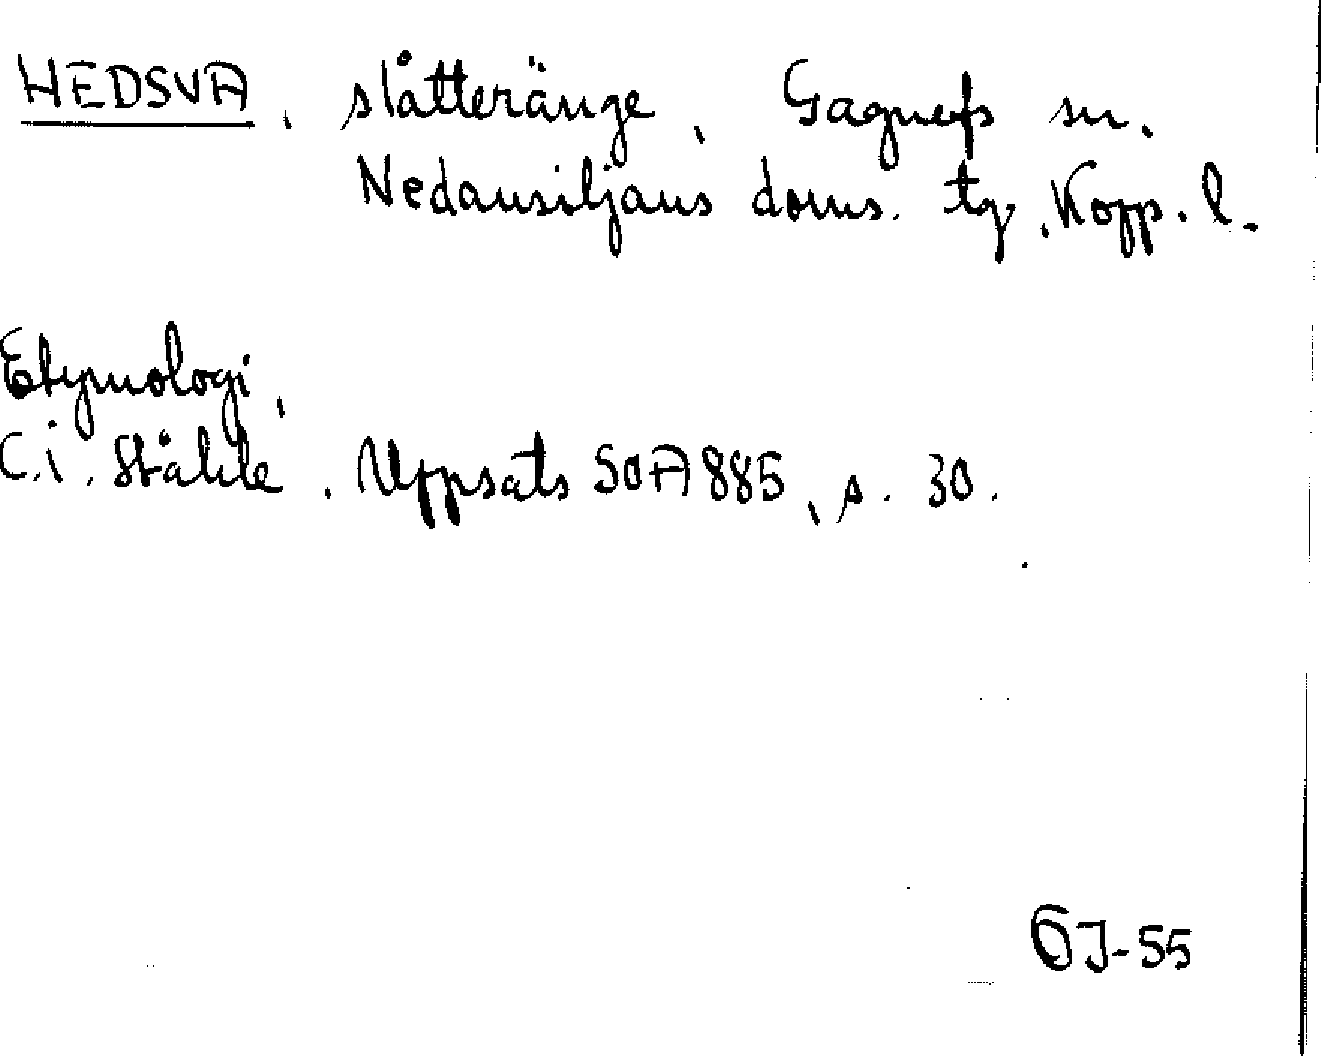 HEDSVA, slåtteränge, Gagnefs sn.
Nedansiljans doms. tg, Kopp. l.
Etymologi,
C.I. Ståhle, Uppsats SOA 885, s. 30.
ÖJ-55